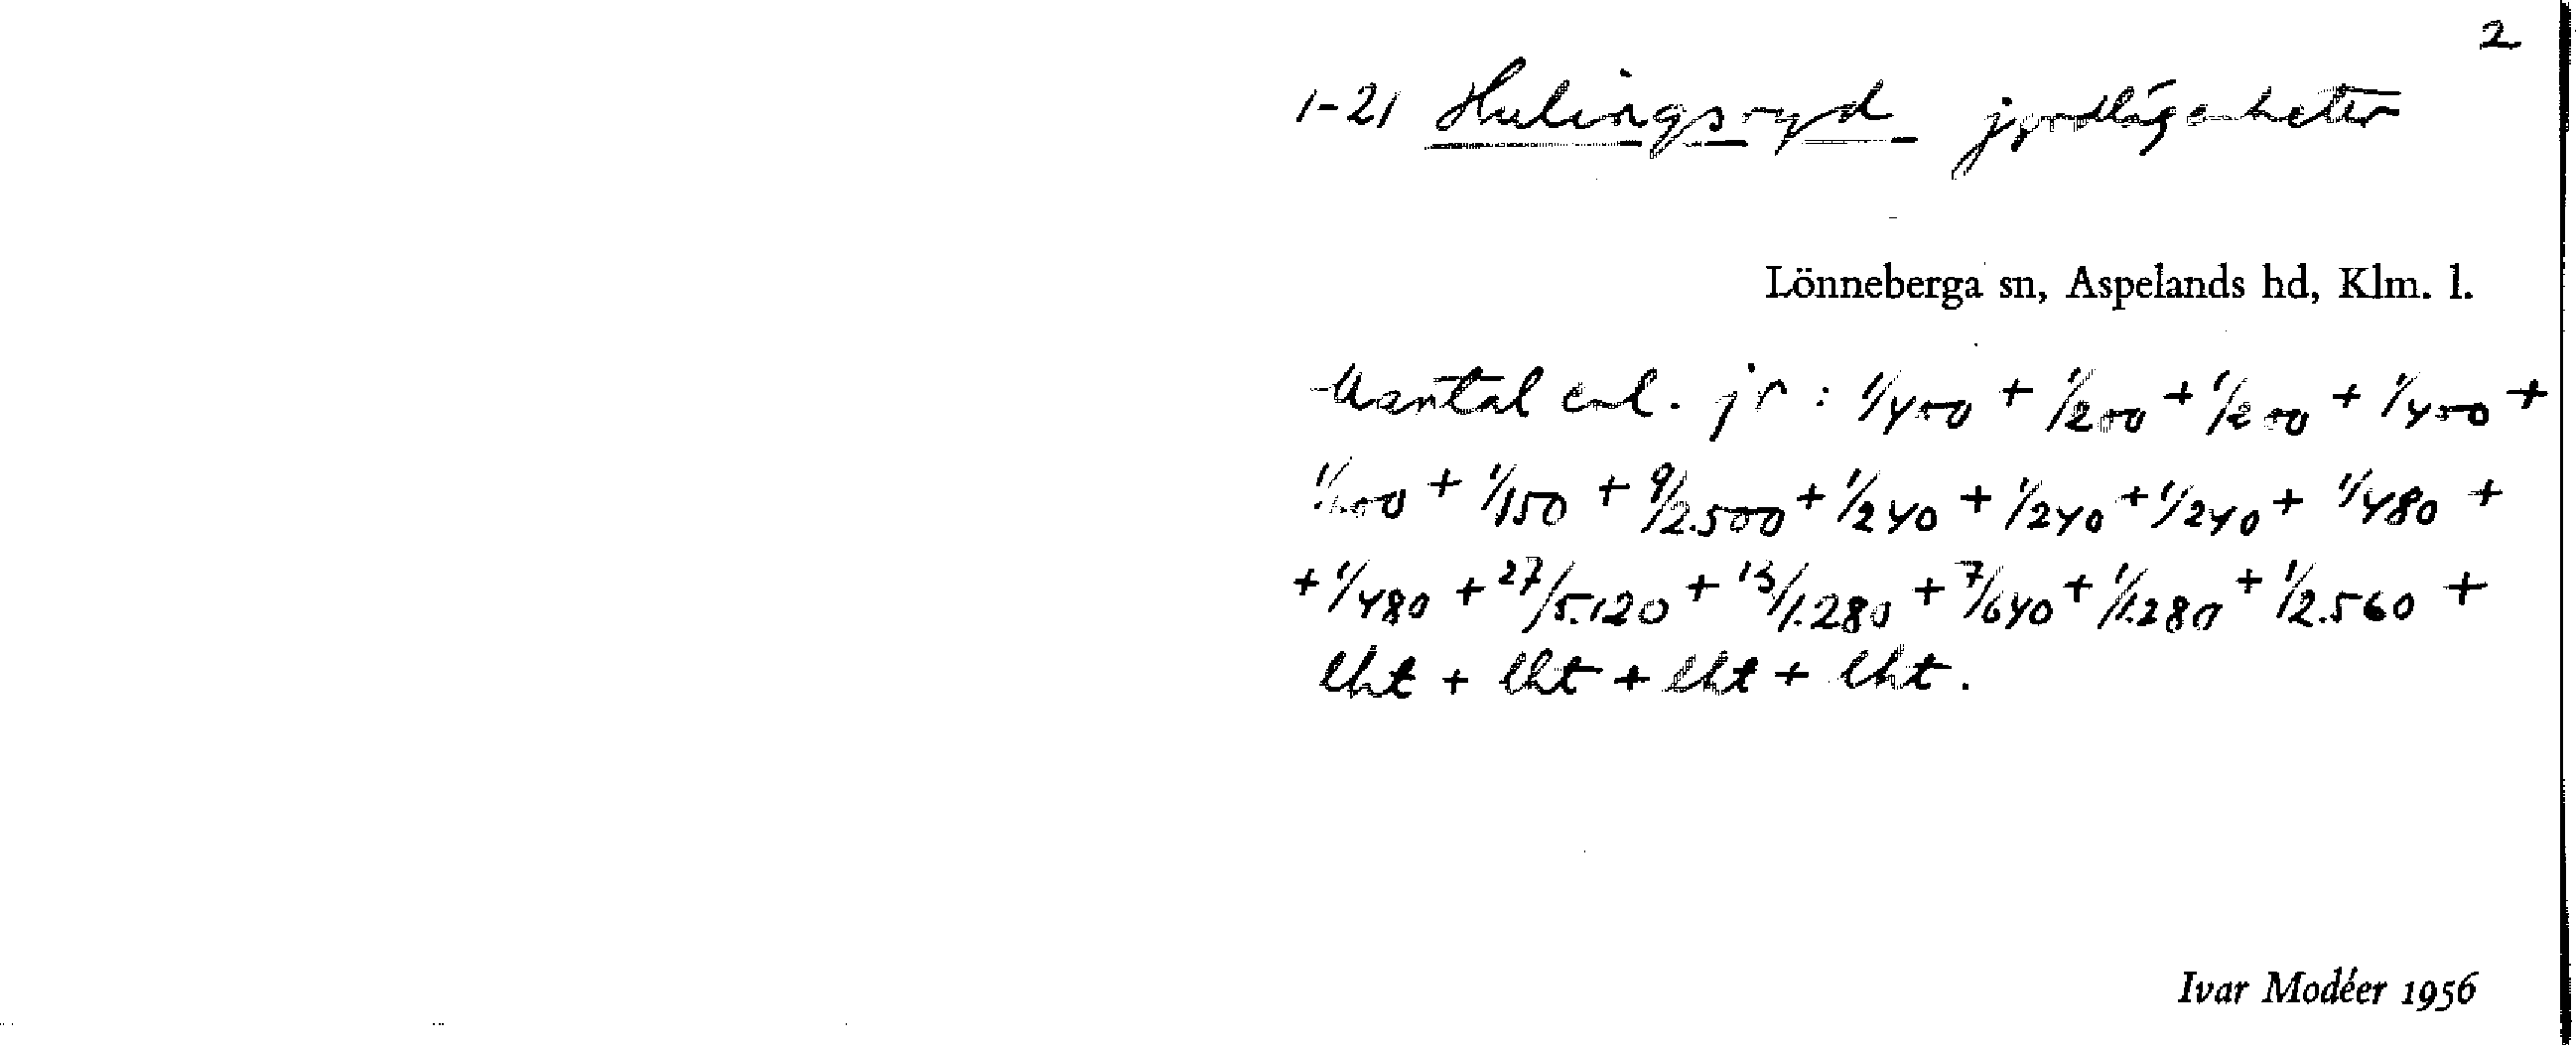 2
1-21 Hulingsryd jordlägenheter
Lönneberga sn, Aspelands hd, Klm. l.
Mantal enl. jr : 1/400 + 1/200 + 1/200 + 1/400 +
+ 1/150 + 9/2.500 + 1/240 + 1/240 + 1/240 + 1/480 +
+ 1/480 + 27/5.120 + 13/1.280 + 7/640 + 1/1.280 + 1/2.560 +
lht + lht + lht + lht.
Ivar Modéer 1956